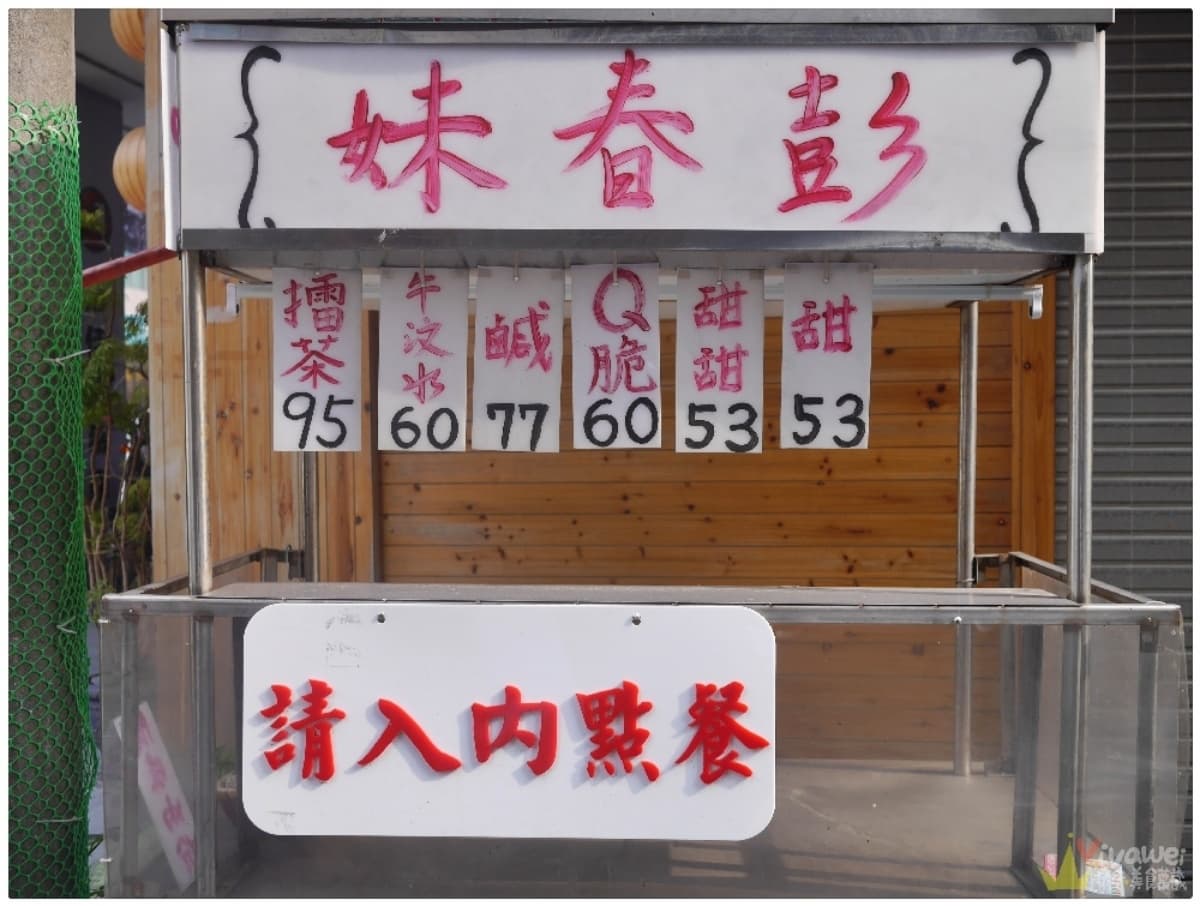 妹春彭
擂茶 95
牛汶水 60
鹹 77
Q脆 60
甜甜 53
甜 53
請入內點餐
Yiyawei